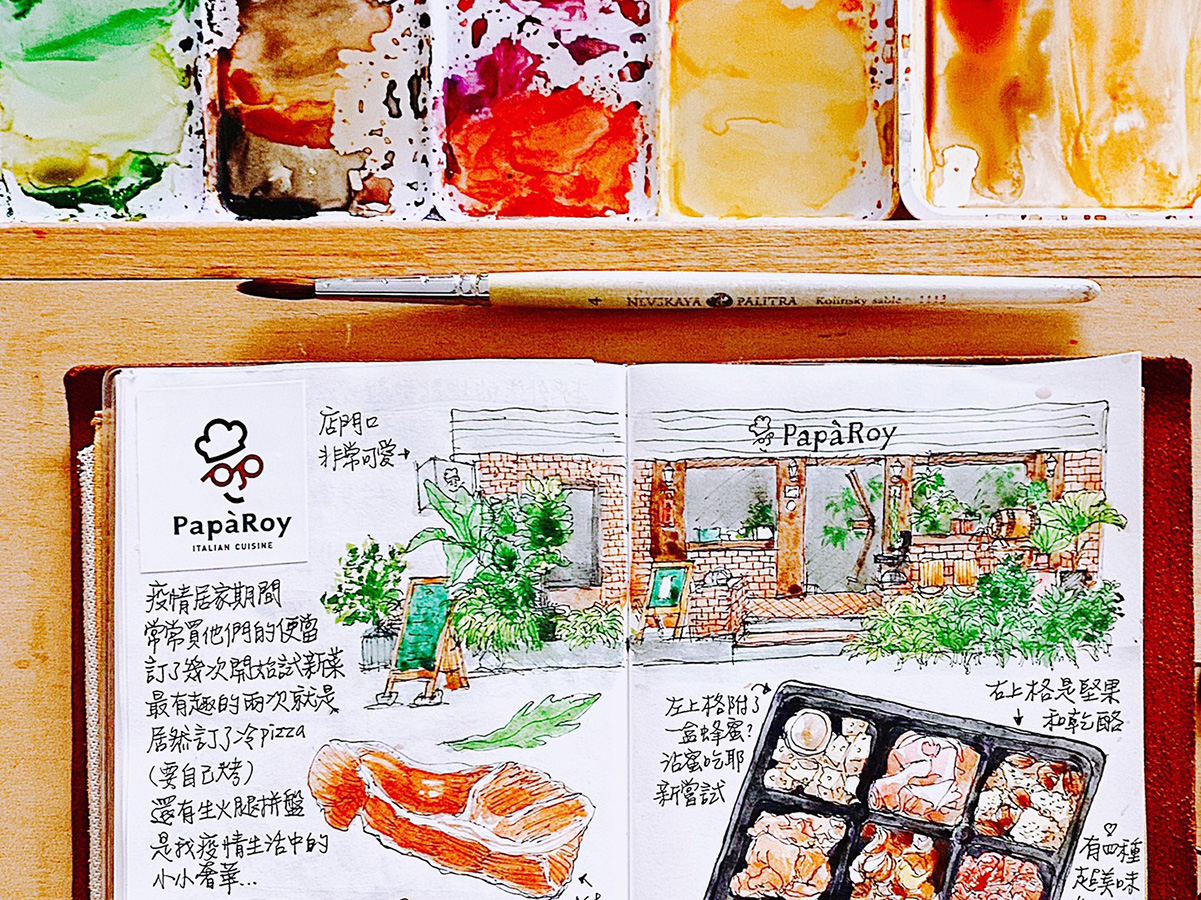 4 NEVSKAYA PALITRA Kolinsky sable 1112
PapàRoy
ITALIAN CUISINE
店門口
非常可愛
PapàRoy
疫情居家期間
常常買他們的便當
訂了幾次開始試新菜
最有趣的兩次就是
居然訂了冷pizza
(要自己烤)
還有生火腿拼盤
是我疫情生活中的
小小奢華...
左上格附了
一盒蜂蜜?
沾蜜吃耶
新嘗試
右上格是堅果
和乾酪
有四種
超美味